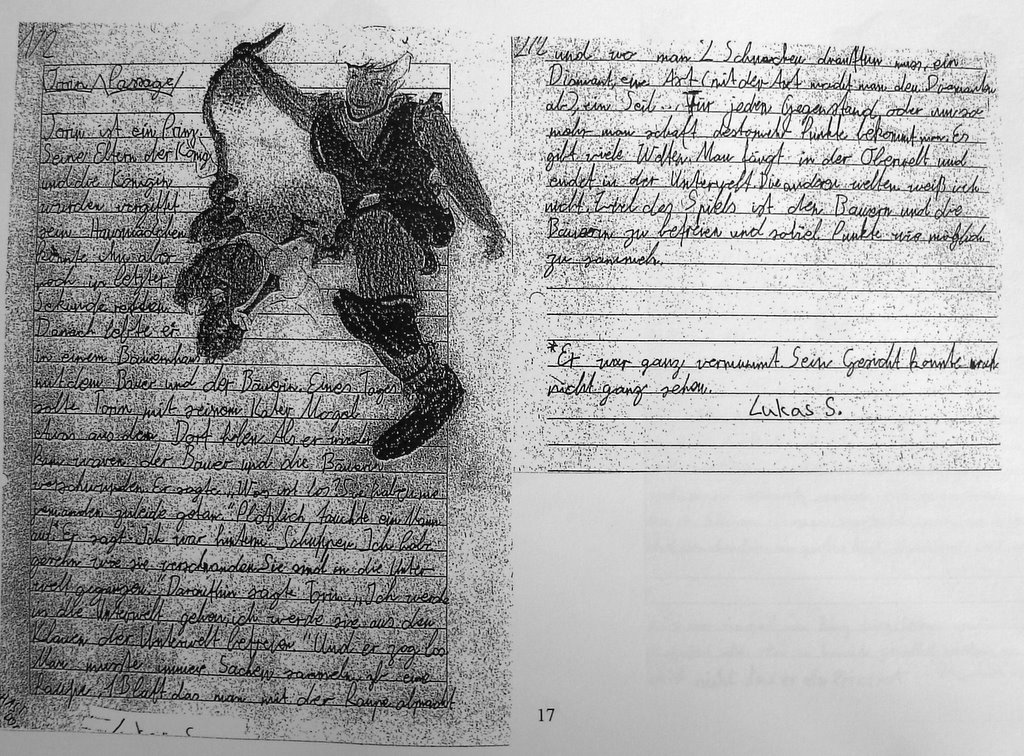 1/2
Torin Passage
Torin ist ein Prinz.
Seine Eltern der König
und die Königin
wurden vergiftet
sein Hausmädchen
konnte ihn aber
noch in letzter
Sekunde retten.
Danach lebte er
in einem Bauernhaus
mit dem Bauer und der Bäuerin. Eines Tages
solte Torin mit seinem Kater
aus dem Dorf holen. Als er wieder
kam waren der Bauer und die Bäuerin
verschwunden. Er sagte „Was ist los? Sie haben nie
jemanden zuleide getan." Plötzlich tauchte ein Mann
auf.* Er sagt „Ich war hinterm Schuppen. Ich habe
gesehn wie sie verschwanden. Sie sind in die Unter
welt gegangen." Daraufhin sagte Torin „Ich werde
in die Unterwelt gehen, ich werde sie aus den
Klauen der Unterwelt befreien" Und er zog los
Man musste immer Sachen sammeln, eine
Raupe, 1 Blatt das man mit der Raupe
2/2
und wo man 2 Schnecken drauftun muss, ein
Diamant, eine Axt (mit der Axt macht man den Diamanten
ab), ein Seil... Für jeden Gegenstand, oder umso
mehr man schaft destomehr Punkte bekommt man. Es
gibt viele Welten. Man fängt in der Oberwelt und
endet in der Unterwelt. Die andere welten weiß ich
nicht. Ziel des Spiels ist den Bauern und die
Bäuerin zu befreien und soviel Punkte wie möglich
zu sammeln.
*Er war ganz vermummt. Sein Gesicht konnte man
nicht ganz sehen.
Lukas S.
17